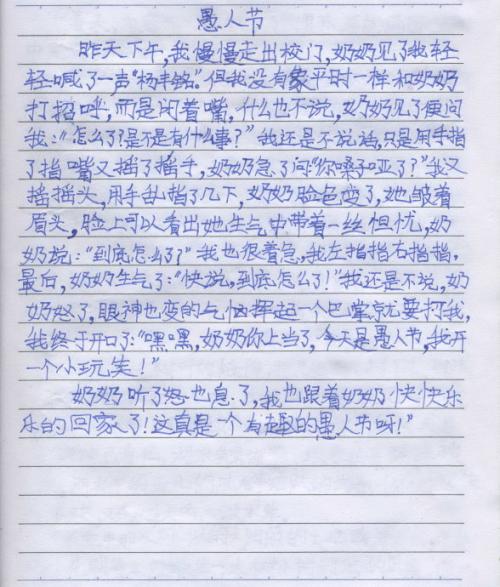 愚人节
昨天下午,我慢慢走出校门,奶奶见了我轻
轻喊了一声“杨丰铭”。但我没有象平时一样和奶奶
打招呼,而是闭着嘴,什么也不说,奶奶见了便问
我:“怎么了?是不是有什么事?”我还是不说话,只是用手指
了指嘴又摇了摇手,奶奶急了问“你嗓子哑了?”我又
摇摇头,用手乱指了几下,奶奶脸色变了,她皱着
眉头,脸上可以看出她生气中带着一丝怛忧,奶
奶说:“到底怎么了?”我也很着急,我左指指右指指,
最后,奶奶生气了:“快说,到底怎么了!”我还是不说,奶
奶怒了,眼神也变的气恼挥起一个巴掌就要打我,
我终于开口了:“嘿嘿,奶奶你上当了,今天是愚人节,我开
一个小玩笑!”
奶奶听了怒也息了,我也跟着奶奶快快乐
乐的回家了!这真是一个有趣的愚人节呀!”